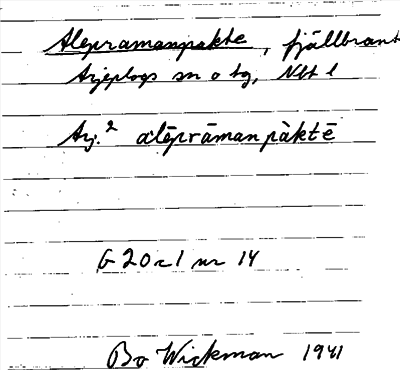 Alepramanpakte, fjällbrant
Arjeplogs sn o tg, Nbt l
Arj.² alēprāmanpàktē
G 20 a 1 nr 14
Bo Wickman 1941